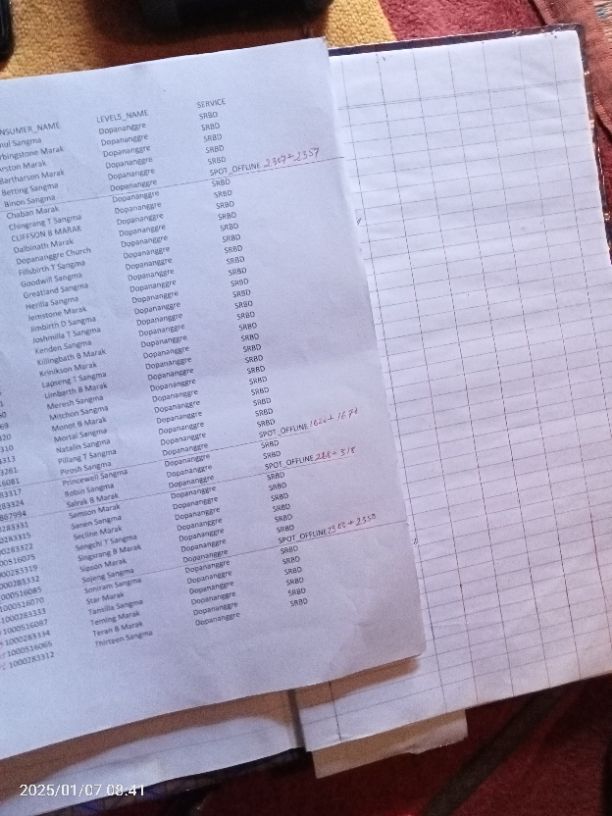 NSUMER_NAME LEVEL5_NAME SERVICE
Sangma Dopananggre SRBD
rbingstone Marak Dopananggre SRBD
rston Marak Dopananggre SRBD
Bartharson Marak Dopananggre SRBD
Betting Sangma Dopananggre SRBD
Binon Sangma Dopananggre SPOT_OFFLINE 2357
Chaban Marak Dopananggre SRBD
Chingrang T Sangma Dopananggre SRBD
CLIFFSON B MARAK Dopananggre SRBD
Dalbinath Marak Dopananggre SRBD
Dopananggre Church Dopananggre SRBD
Fillsbirth T Sangma Dopananggre SRBD
Goodwill Sangma Dopananggre SRBD
Greatland Sangma Dopananggre SRBD
Herilla Sangma Dopananggre SRBD
Jemstone Marak Dopananggre SRBD
Jimbirth D Sangma Dopananggre SRBD
Joshmilla T Sangma Dopananggre SRBD
Kenden Sangma Dopananggre SRBD
Killingbath B Marak Dopananggre SRBD
Krinikson Marak Dopananggre SRBD
Lapseng T Sangma Dopananggre SRBD
Limbarth B Marak Dopananggre SRBD
Meresh Sangma Dopananggre SRBD
Mitchon Sangma Dopananggre SRBD
Monot B Marak Dopananggre SRBD
Mortal Sangma Dopananggre SRBD
310 Natalin Sangma Dopananggre SRBD
4313 Pillang T Sangma Dopananggre SRBD
3261 Pirosh Sangma Dopananggre SPOT_OFFLINE
6081 Princewell Sangma Dopananggre SRBD
83317 Robin Sangma Dopananggre SPOT_OFFLINE 318
83324 Salrak B Marak Dopananggre SRBD
867994 Samson Marak Dopananggre SRBD
0283331 Sanen Sangma Dopananggre SRBD
0283315 Secline Marak Dopananggre SRBD
00283322 Sengchi T Sangma Dopananggre SRBD
00516075 Singrang B Marak Dopananggre SRBD
000283319 Sipson Marak Dopananggre SPOT_OFFLINE
000516085 Sojeng Sangma Dopananggre SRBD
000283332 Soniram Sangma Dopananggre SRBD
1000516070 Star Marak Dopananggre SRBD
1000283333 Tansilla Sangma Dopananggre SRBD
1000516087 Teming Marak Dopananggre SRBD
1000283334 Terah B Marak Dopananggre SRBD
1000516065 Thirteen Sangma Dopananggre
1000283312
2025/01/07 08:41